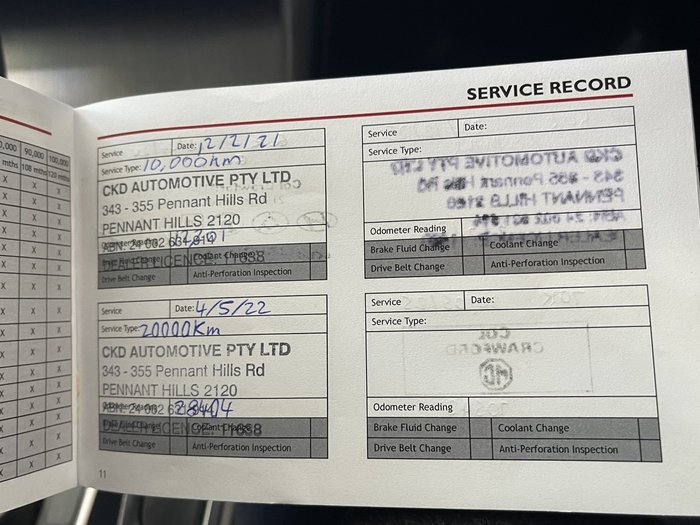 SERVICE RECORD
,000 90,000 100,000
mths 108 mths 120 mths
Service Date: 12/2/21
Service Type: 10,000km
CKD AUTOMOTIVE PTY LTD
343 - 355 Pennant Hills Rd
PENNANT HILLS 2120
ABN: 24 002 631 914
DEALER LICENCE: 11638
Drive Belt Change Anti-Perforation Inspection
Service Date: 4/5/22
Service Type: 20000Km
CKD AUTOMOTIVE PTY LTD
343 - 355 Pennant Hills Rd
PENNANT HILLS 2120
ABN: 24 002 631 28404
DEALER LICENCE: 11638
Drive Belt Change Anti-Perforation Inspection
11
Service Date:
Service Type:
CKD AUTOMOTIVE PTY LTD
343 - 355 Pennant Hills Rd
PENNANT HILLS 2120
Odometer Reading
Brake Fluid Change Coolant Change
Drive Belt Change Anti-Perforation Inspection
Service Date:
Service Type:
COL
CRAWFORD
MG
Odometer Reading
Brake Fluid Change Coolant Change
Drive Belt Change Anti-Perforation Inspection